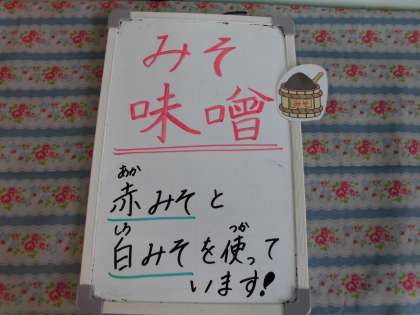 みそ
味噌
あか
赤みそと
しろ つか
白みそを使って
います!